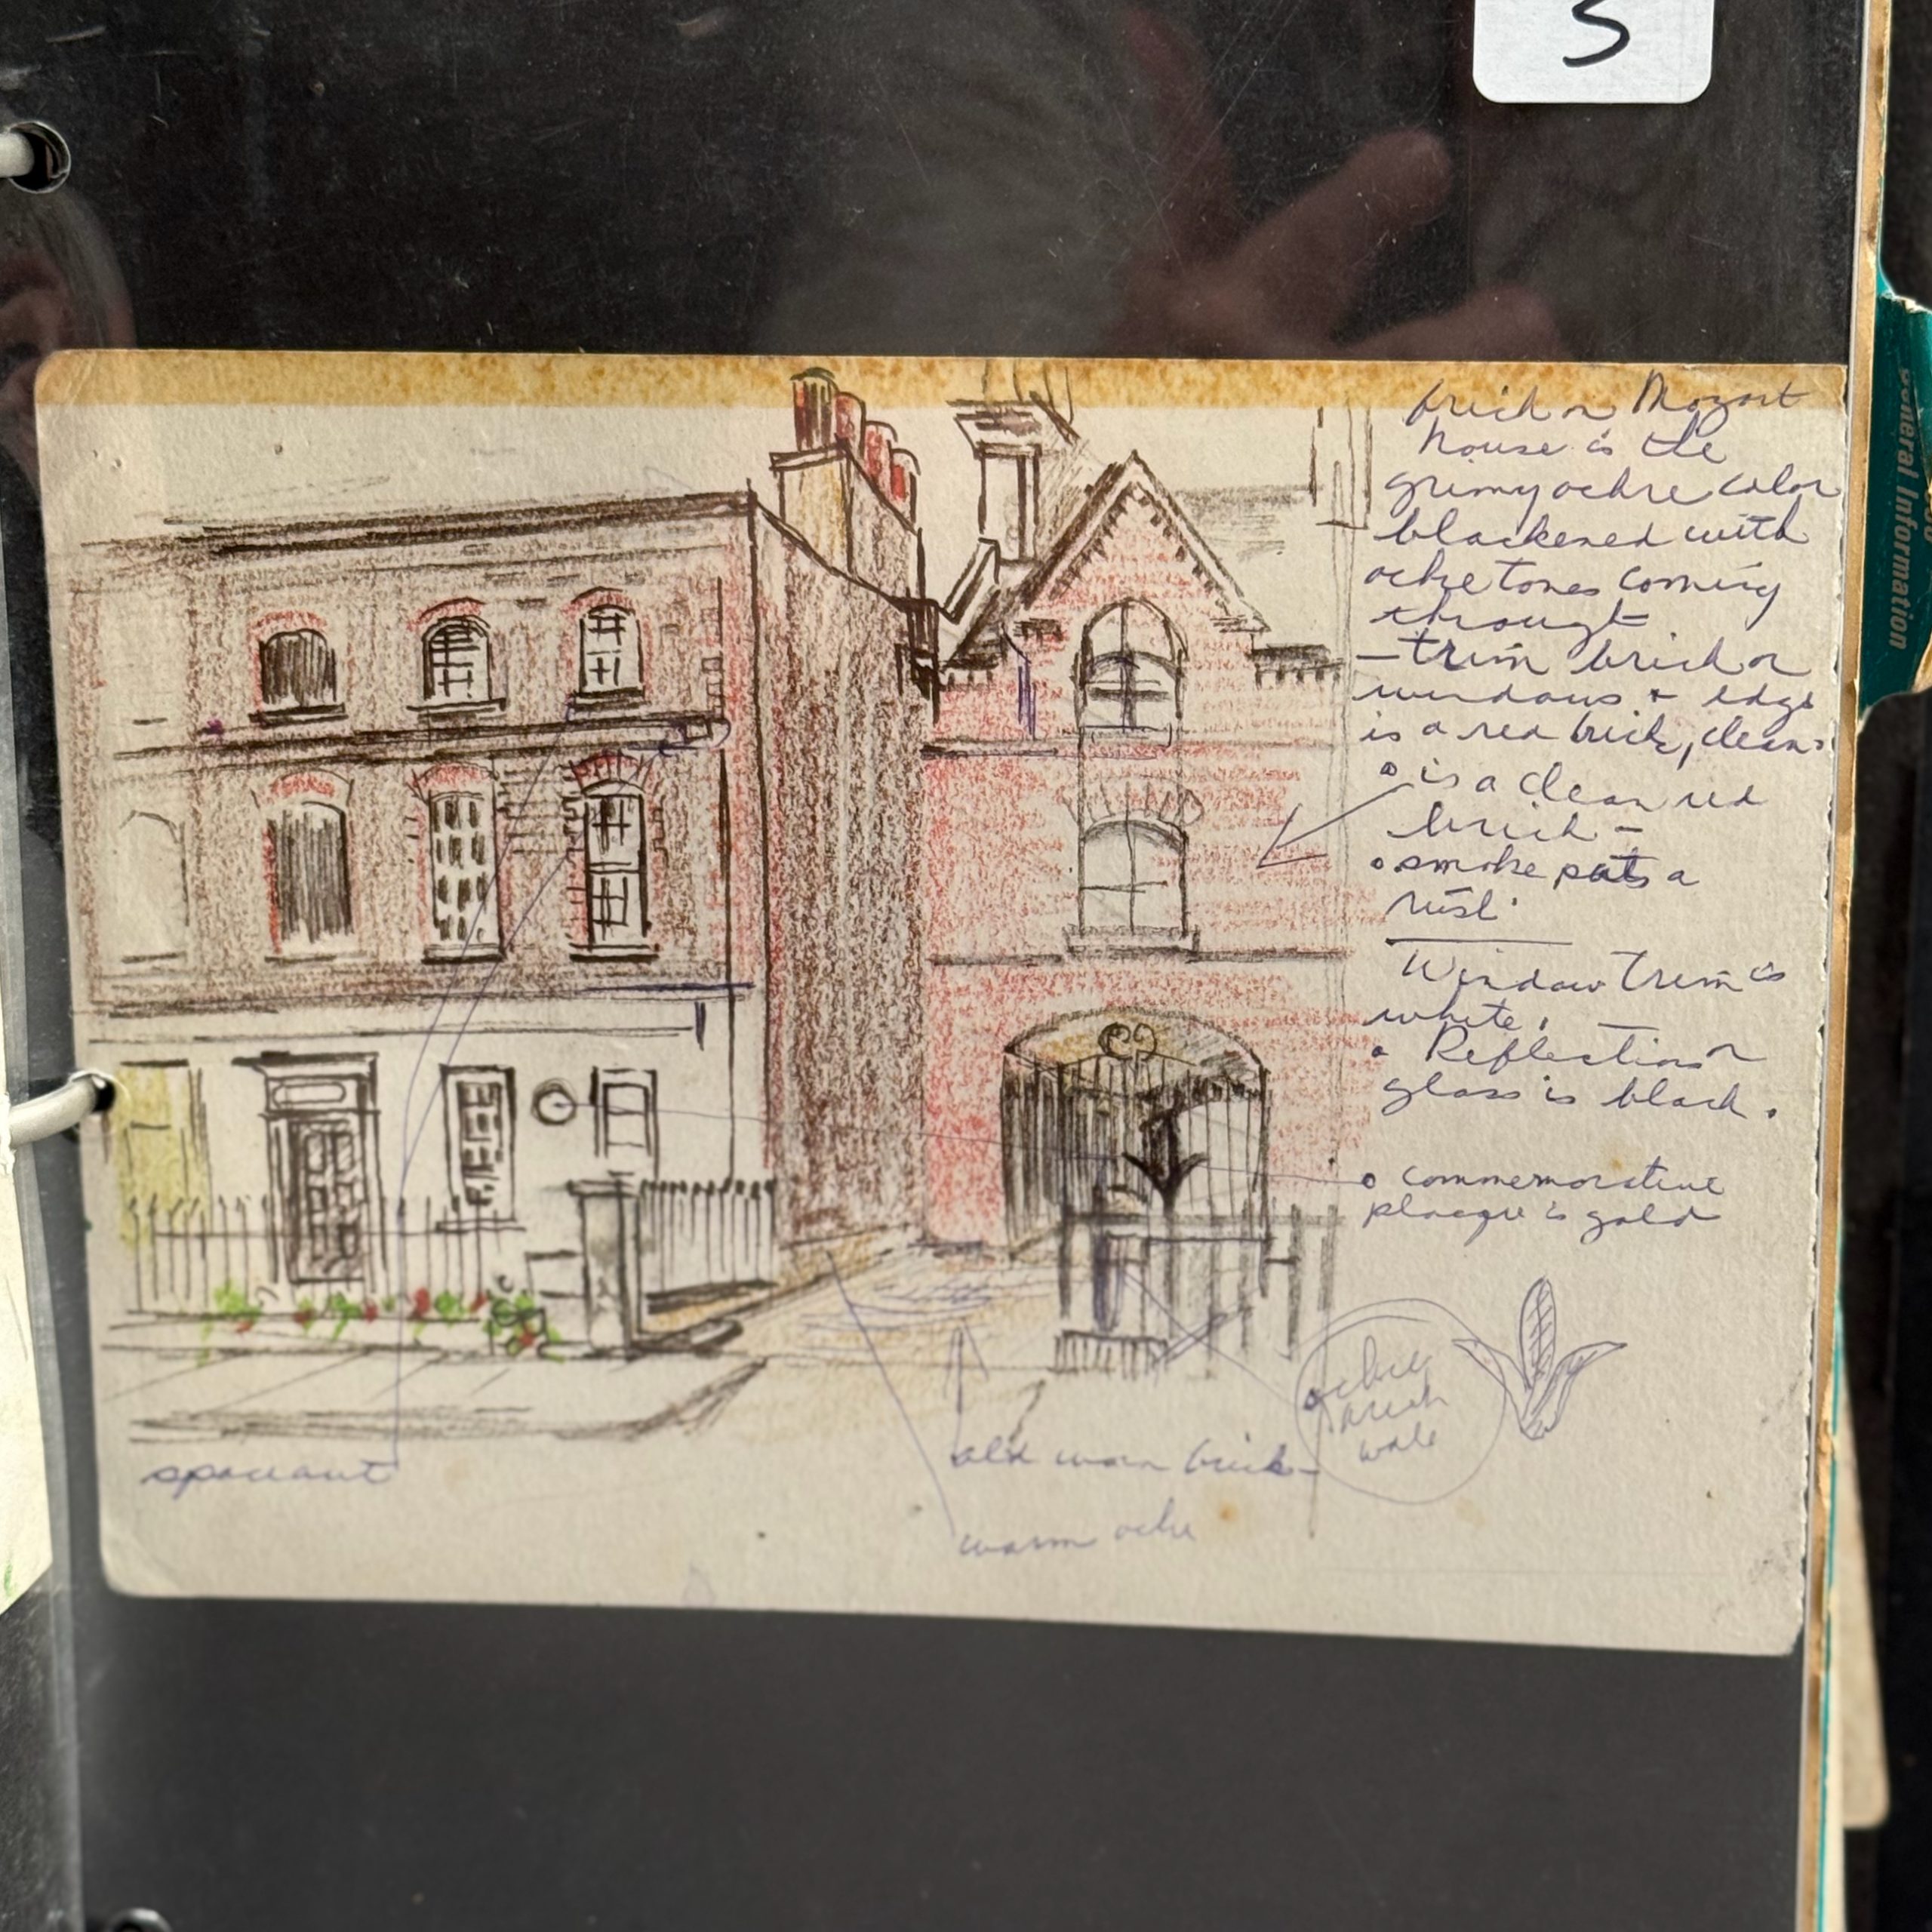 S
General Information
brick on Mozart
house is the
grimy ochre color
blackened with
ochre tones coming
through
– trim brick on
windows + edge
is a red brick, clean.
is a clean red
brick –
smoke puts a
Window trim is
white.
Reflection on
glass is black.
commemorative
plaque is gold
ochre
wale
old worn brick –
warm ochre